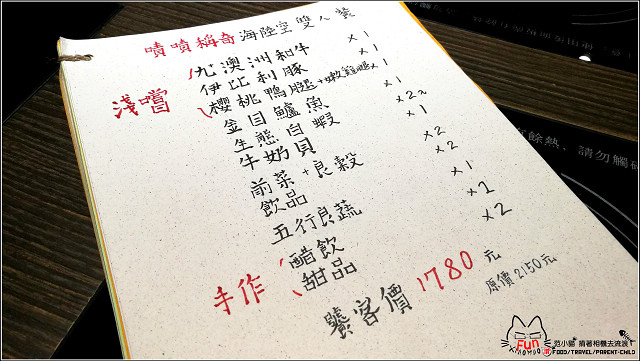 嘖嘖稱奇海陸空雙人饗
淺嚐
九澳洲和牛 x1
伊比利豚 x1
櫻桃鴨腿+嫩雞腿x1
金目鱸魚 x1
生態白蝦 x2
牛奶貝 x1
前菜+良穀 x2
飲品 x2
五行良蔬 x1
手作
醋飲 x2
甜品 x2
饕客價1780元
原價2150元
餘熱、請勿觸碰
FUN
范小貓 揹著相機去流浪
FOOD/TRAVEL/PARENT-CHILD